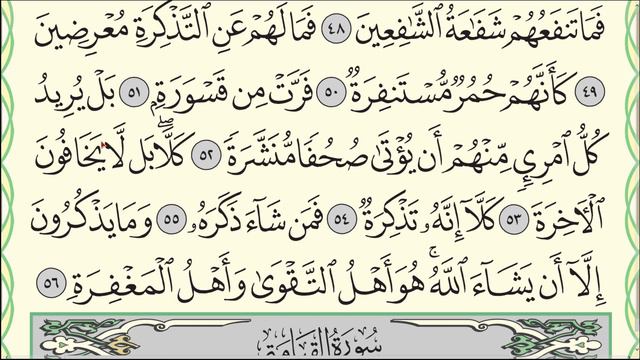 فَمَا تَنفَعُهُمْ شَفَٰعَةُ ٱلشَّٰفِعِينَ ٤٨ فَمَا لَهُمْ عَنِ ٱلتَّذْكِرَةِ مُعْرِضِينَ
٤٩ كَأَنَّهُمْ حُمُرٌ مُّسْتَنفِرَةٌ ٥٠ فَرَّتْ مِن قَسْوَرَةٍۭ ٥١ بَلْ يُرِيدُ
كُلُّ ٱمْرِئٍ مِّنْهُمْ أَن يُؤْتَىٰ صُحُفًا مُّنَشَّرَةً ٥٢ كَلَّاۖ بَل لَّا يَخَافُونَ
ٱلْأَخِرَةَ ٥٣ كَلَّآ إِنَّهُۥ تَذْكِرَةٌ ٥٤ فَمَن شَآءَ ذَكَرَهُۥ ٥٥ وَمَا يَذْكُرُونَ
إِلَّآ أَن يَشَآءَ ٱللَّهُۚ هُوَ أَهْلُ ٱلتَّقْوَىٰ وَأَهْلُ ٱلْمَغْفِرَةِ ٥٦
سُورَةُ ٱلْقِيَامَةِ